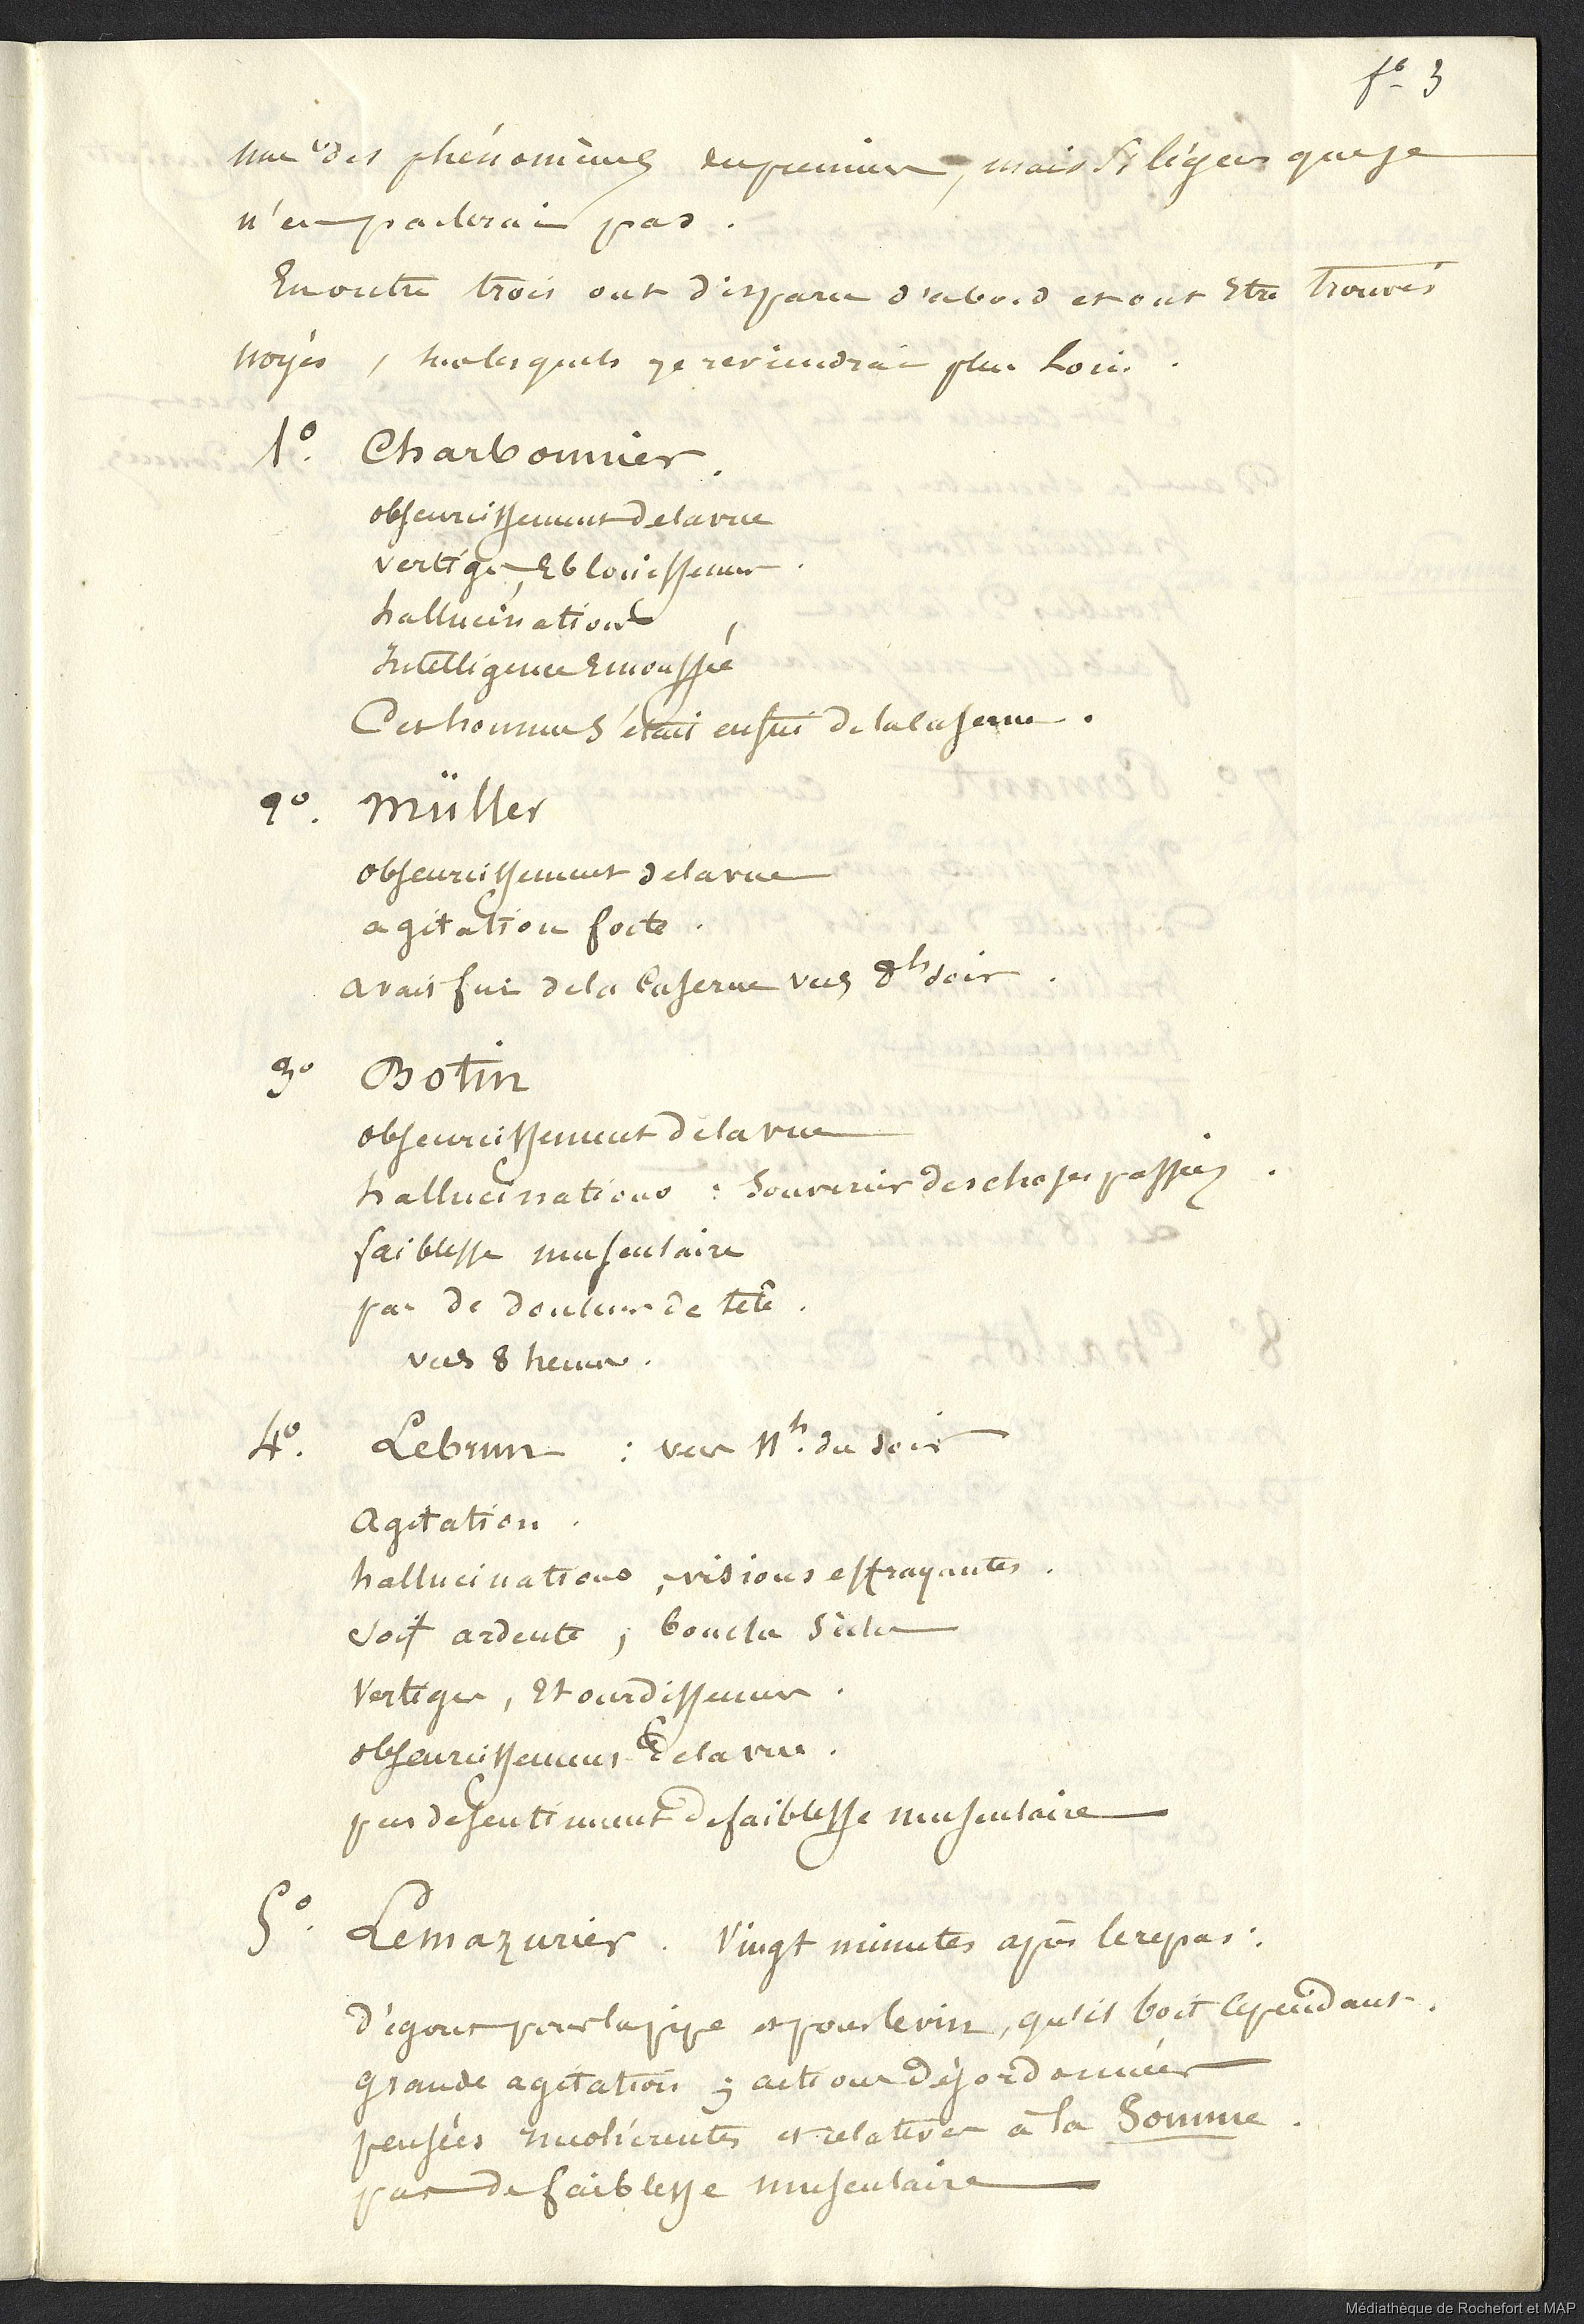 fº 3
des phénomènes du premier, mais si légers que je
n'en parlerai pas.
En outre trois ont disparu d'abord et ont être trouvés
noyés, sur lesquels je reviendrai plus loin.
1º. Charbonnier.
obscurcissement de la vue
vertiges, Eblouissemens.
hallucinations
Intelligence Emoussée
Cet homme s'était enfui de la caserne.
2º. Müller
obscurcissement de la vue
agitation forte.
avait fui de la Caserne vers 8h soir.
3º Botin
obscurcissement de la vue
hallucinations : Souvenir des choses passées.
faiblesse musculaire
pas de douleurs de tête.
vers 8 heures.
4º. Lebrun : vers 11h. du soir
Agitation.
hallucinations, visions effrayantes.
Soif ardente, bouche sèche
Vertiges, Etourdissemens.
obscurcissemens de la vue.
pas de sentiment de faiblesse musculaire
5º. Lemazurier. Vingt minutes après le repas :
Dégout pour la pipe et pour le vin, qu'il boit cependant.
Grande agitation ; actions désordonnées
pensées incohérentes et relatives à la Somme.
pas de faiblesse musculaire
Médiathèque de Rochefort et MAP